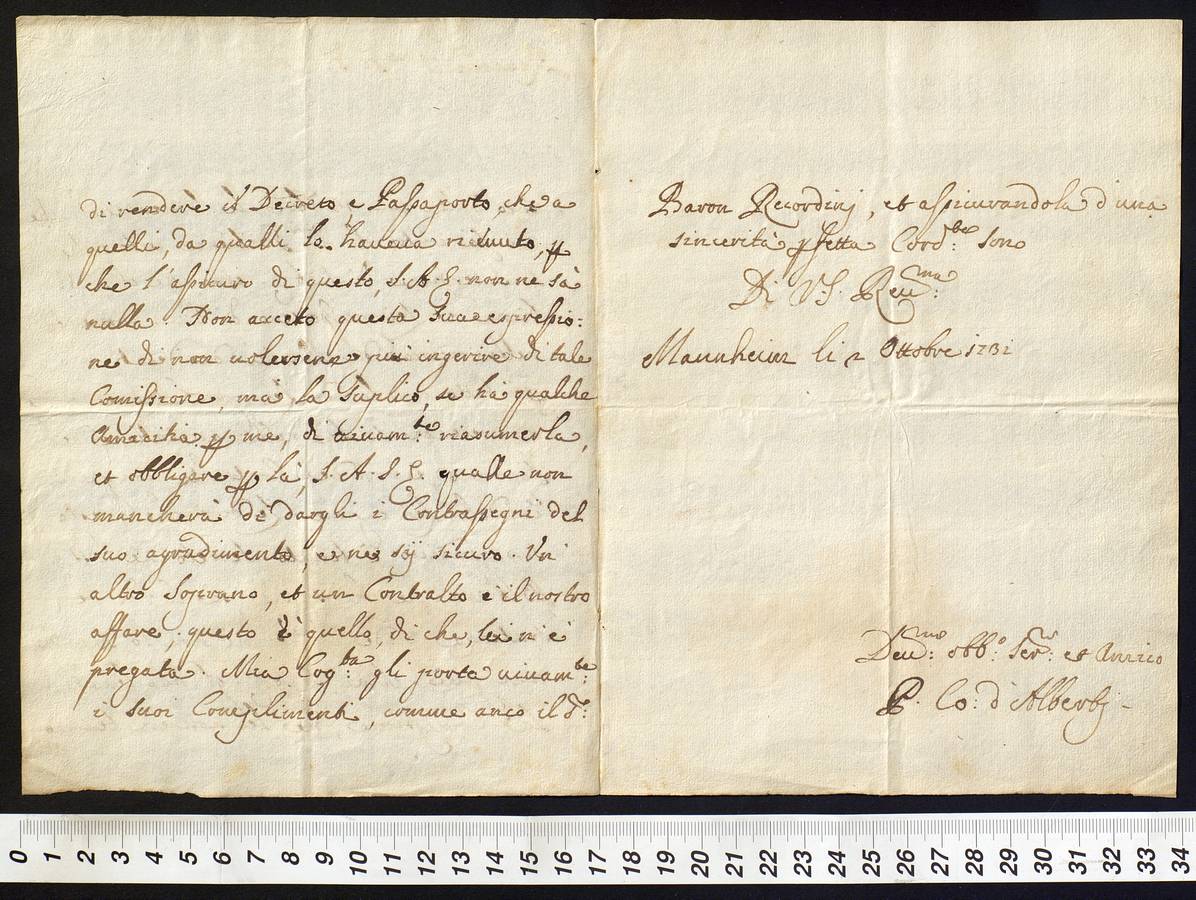 di rendere il Decreto e Passaporto, che a
quelli, da qualli lo haueua riceuuto, p
che l'assicuro di questo, S. A. E. non ne sà
nulla. Non acceto questa Sua espressio:
ne di non uolersene piú ingerire di tale
Comissione, mà la Suplico, se hà qualche
Amicitia p me, di uiuam:te riasumerla,
et obbligare p là, S. A. S. E. qualle non
mancherà di dargli i Contrassegni del
suo agradimento, e ne sij sicuro. Un'
altro Soprano, et un Contralto è il nostro
affare, questo è quello, di che, lei n'è
pregata. Mia Cog:ta gli porta uiuam:te
i suoi Complimenti, comme anco il S:
Baron Recordinj, et assicurandola d'una
sincerità pfetta Cord:te Sono
Di V: S. Reu:ma
Mannheim li 2 Ottobre 1731
Deu:mo obb:o Ser:r et Amico
P. Co: d'Albertj
0 1 2 3 4 5 6 7 8 9 10 11 12 13 14 15 16 17 18 19 20 21 22 23 24 25 26 27 28 29 30 31 32 33 34